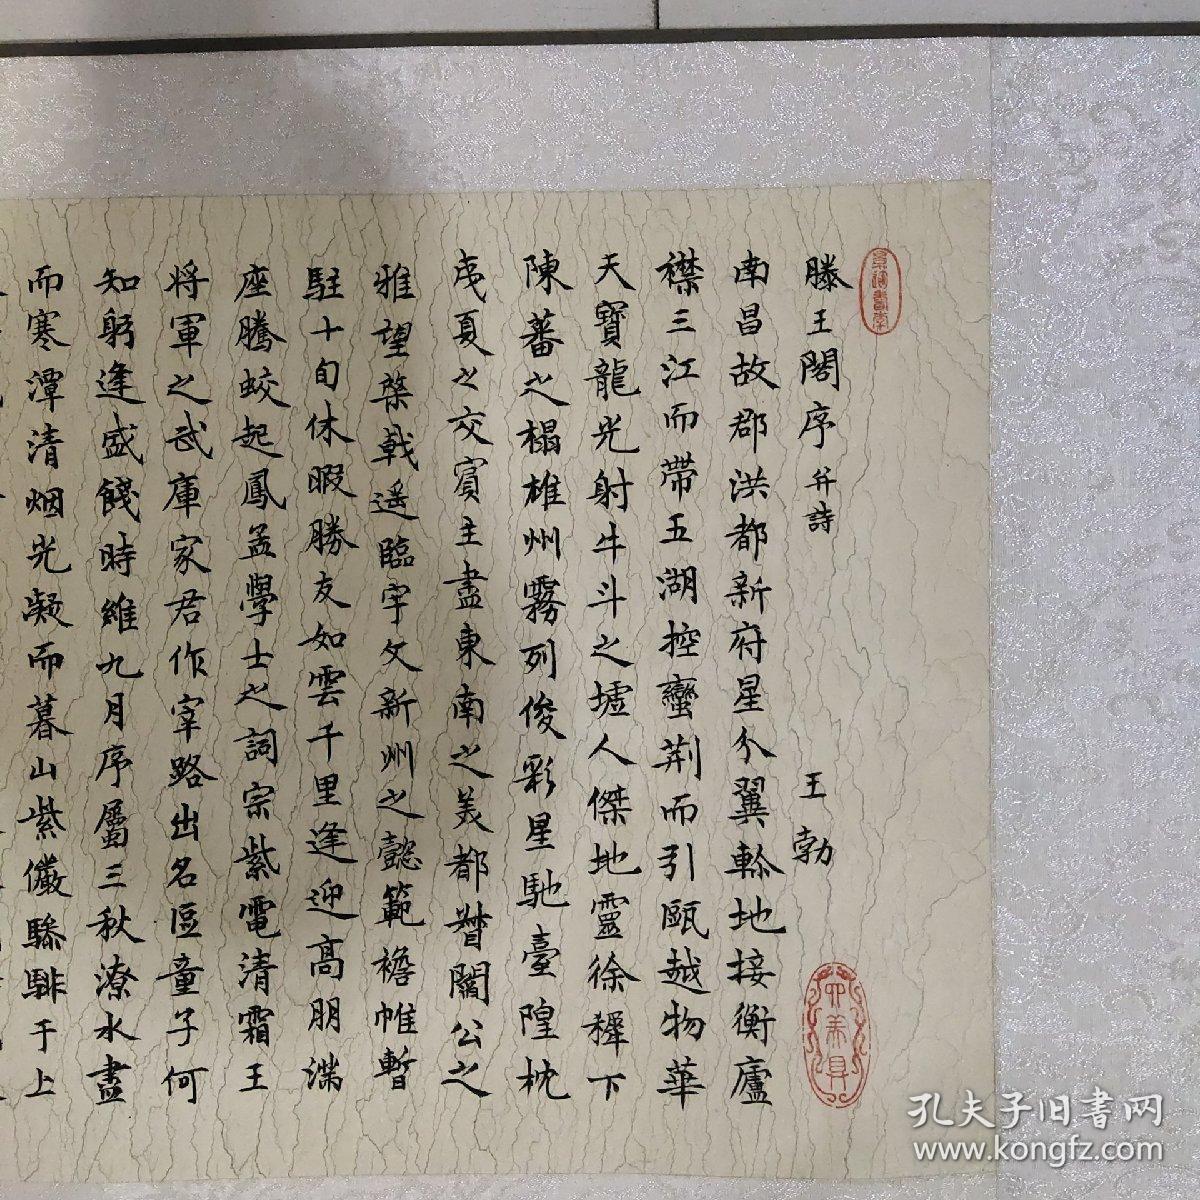 滕王閣序并詩 王勃
南昌故郡洪都新府星分翼軫地接衡廬
襟三江而帶五湖控蠻荆而引甌越物華
天寶龍光射牛斗之墟人傑地靈徐穉下
陳蕃之榻雄州霧列俊彩星馳臺隍枕
夷夏之交賓主盡東南之美都督閻公之
雅望棨戟遥臨宇文新州之懿範襜帷暫
駐十旬休暇勝友如雲千里逢迎高朋滿
座騰蛟起鳳孟學士之詞宗紫電清霜王
將軍之武庫家君作宰路出名區童子何
知躬逢盛餞時維九月序屬三秋潦水盡
而寒潭清烟光凝而暮山紫儼驂騑于上
孔夫子旧書网
www.kongfz.com